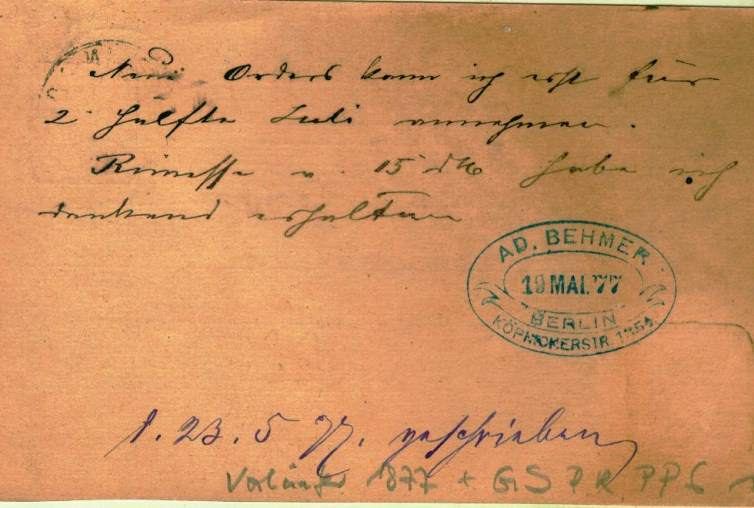 Neue Orders kann ich erst für
2. Hälfte Juli annehmen.
Rimesse v. 15 d M habe ich
dankend erhalten
AD. BEHMER
19 MAI. 77
BERLIN
KÖPNICKERSTR.
d. 23. 5 77. geschrieben
Vorläufer 1877 + GS